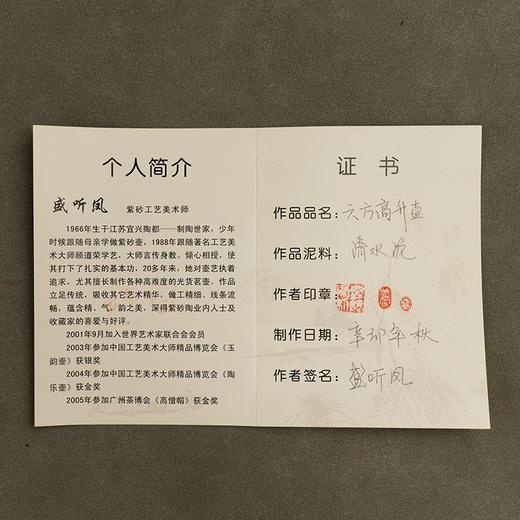 个人简介
盛听凤 紫砂工艺美术师
1966年生于江苏宜兴陶都——制陶世家，少年
时候跟随母亲学做紫砂壶，1988年跟随著名工艺美
术大师顾道荣学艺，大师言传身教、倾心相授，使
其打下了扎实的基本功，20多年来，她对壶艺执着
追求，尤其擅长制作各种高难度的光货茗壶。作品
立足传统，吸收其它艺术精华，做工精细、线条流
畅，蕴含精、气、韵之美，深得紫砂陶业内人士及
收藏家的喜爱与好评。
2001年9月加入世界艺术家联合会会员
2003年参加中国工艺美术大师精品博览会《玉
韵壶》获银奖
2004年参加中国工艺美术大师精品博览会《陶
乐壶》获金奖
2005年参加广州茶博会《高僧帽》获金奖
证书
作品品名：六方高升壶
作品泥料：清水泥
作者印章：
制作日期：辛卯年秋
作者签名：盛听凤